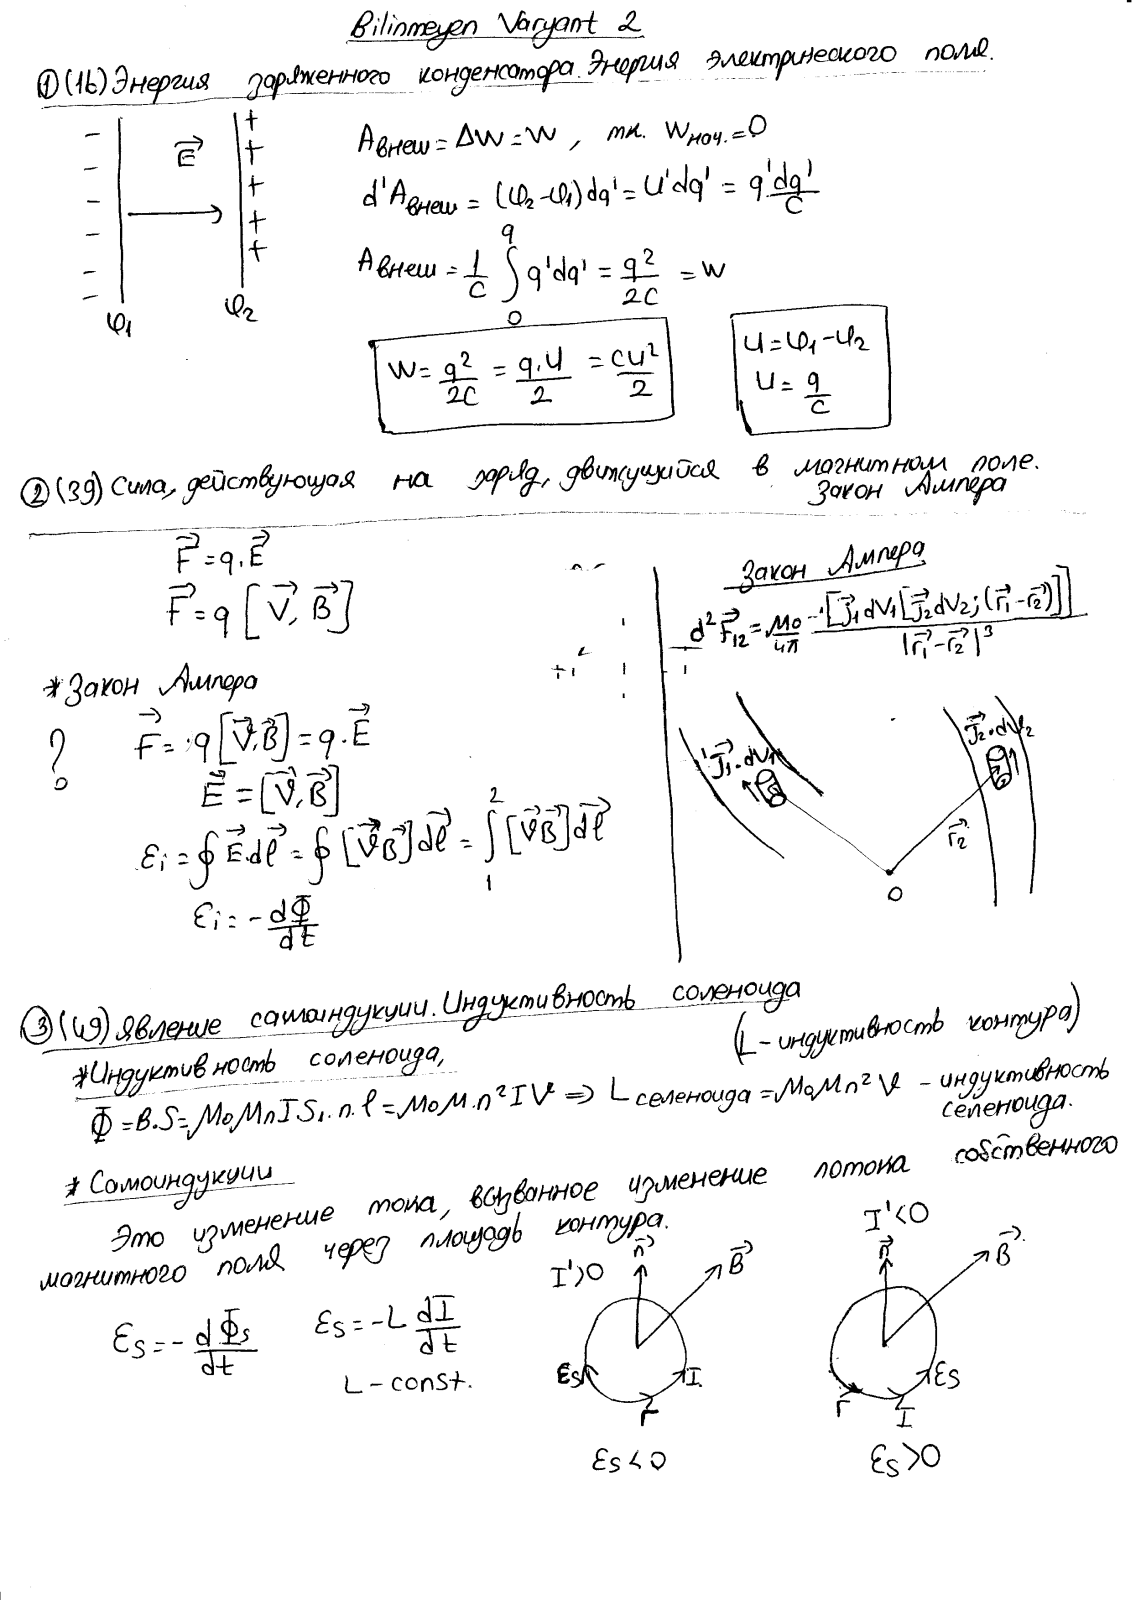 Bilinmeyen Varyant 2
① (16) Энергия заряженного конденсатора. Энергия электрического поля.
− − − − − −
+ + + + +
E⃗
φ₁ φ₂
Aвнеш = ΔW = W, т.к. Wнач. = 0
d'Aвнеш = (φ₂-φ₁)dq' = U'dq' = q'dq'/C
Aвнеш = 1/C ∫₀^q q'dq' = q²/2C = W
W = q²/2C = q.U/2 = CU²/2
U = φ₁ - φ₂
U = q/C
② (39) Сила, действующая на заряд, движущийся в магнитном поле.
Закон Ампера
F⃗ = q.E⃗
F⃗ = q [V⃗, B⃗]
* Закон Ампера
?
F⃗ = q [V⃗.B⃗] = q.E⃗
E⃗ = [V⃗, B⃗]
εi = ∮ E⃗.dl⃗ = ∮ [V⃗B⃗]dl⃗ = ∫₁² [V⃗B⃗]dl⃗
εi = - dΦ/dt
Закон Ампера
d²F⃗₁₂ = μ₀/4π [j⃗₁dV₁[j⃗₂dV₂; (r⃗₁-r⃗₂)]]/|r⃗₁-r⃗₂|³
j⃗₁.dV₁
j⃗₂.dV₂
r⃗₂
O
③ (49) Явление самоиндукции. Индуктивность соленоида
(L - индуктивность контура)
* Индуктивность соленоида,
Φ = B.S = μ₀μnIS₁.n.l = μ₀μ.n²IV ⇒ Lселеноида = μ₀μn²V - индуктивность
селеноида.
* Самоиндукции
Это изменение тока, вызванное изменение потока собственного
магнитного поля через площадь контура.
εs = - dΦs/dt
εs = -L dI/dt
L - const.
I' > 0
n⃗
B⃗
εs
I
r⃗
εs < 0
I' < 0
n⃗
B⃗
εs
r⃗
I
εs > 0